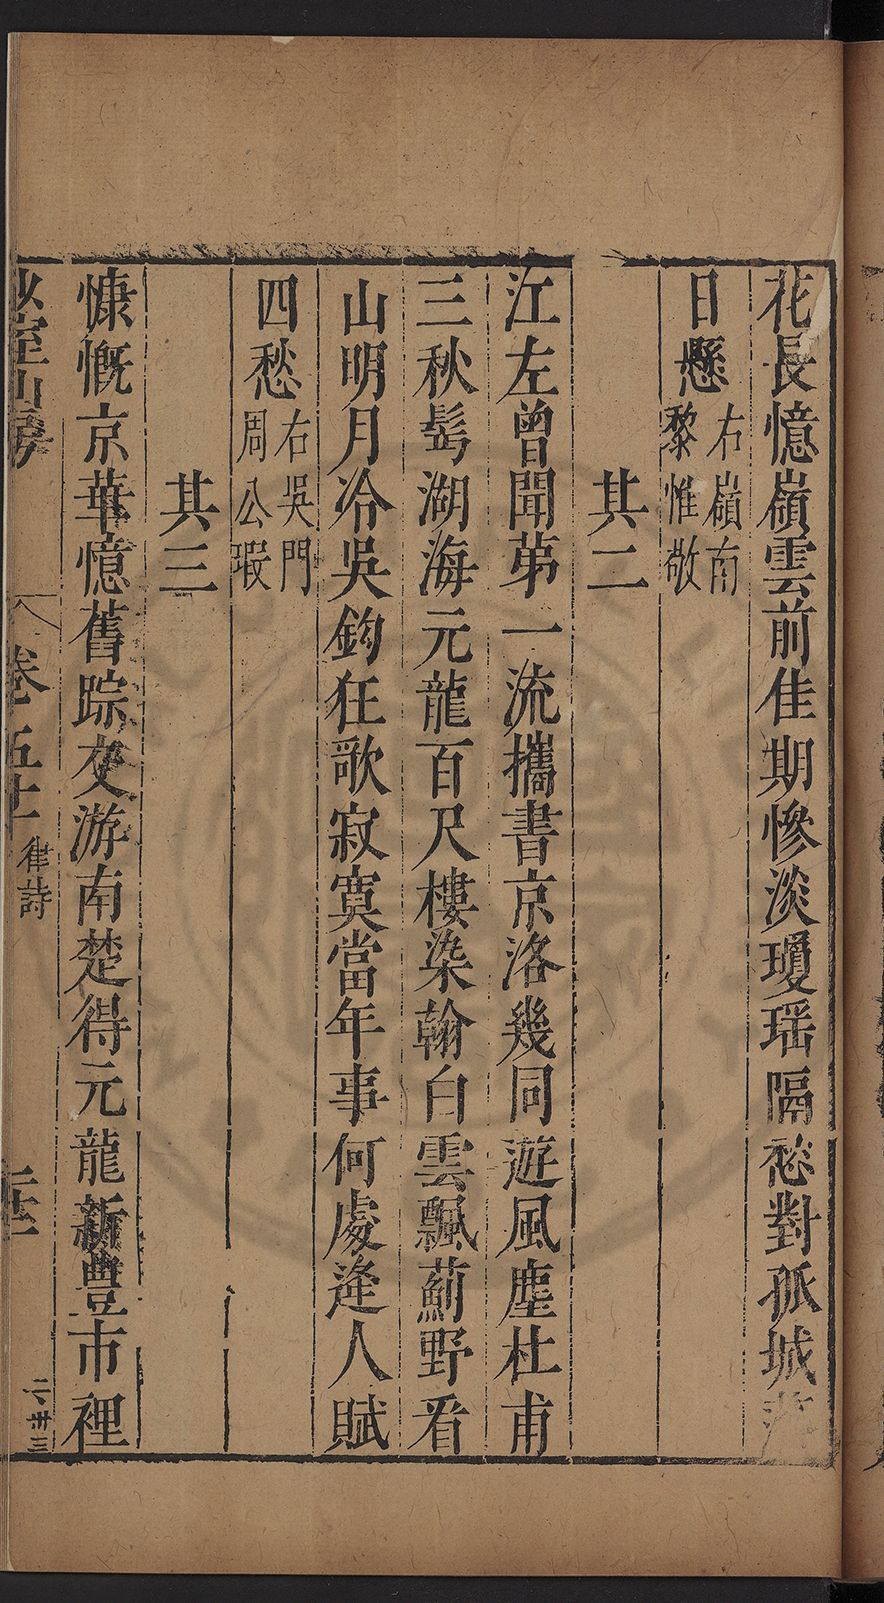 花長憶嶺雲前佳期慘淡瓊瑶隔愁對孤城
日懸右嶺南
黎惟敬
其二
江左曾聞第一流攜書京洛幾同遊風塵杜甫
三秋髩湖海元龍百尺樓染翰白雲飄薊野看
山明月冷吳鈎狂歌寂寞當年事何處逢人賦
四愁右吳門
周公瑕
其三
慷慨京華憶舊踪交游南楚得元龍新豊市裡
少室山房
卷五十
律詩
二卅三